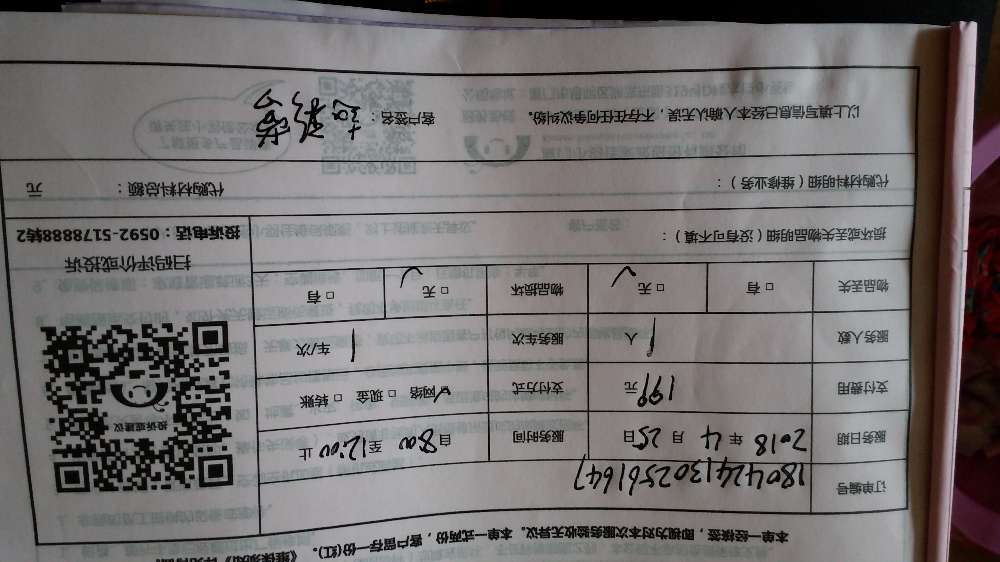 本单一经核签，即视为对本次服务验收无异议。本单一式两份，客户留存一份(红)。
订单编号 1804241302561647
服务日期 2018 年 4 月 25 日 服务时间 自 8:00 至 12:00 止
支付费用 199 元 支付方式 ☑ 网络 □ 现金 □ 转账
服务人数 1 人 服务车次 1 车/次
物品丢失 □ 有 □ 无 ✓ 物品损坏 □ 无 ✓ □ 有
损坏或丢失物品明细（没有可不填）：
代购材料明细（维修业务）： 代购材料总额： 元
以上填写信息已经本人确认无误，不存在任何争议纠纷。 客户签名：
投诉或建议
扫码评价或投诉
投诉电话：0592-5178888转2